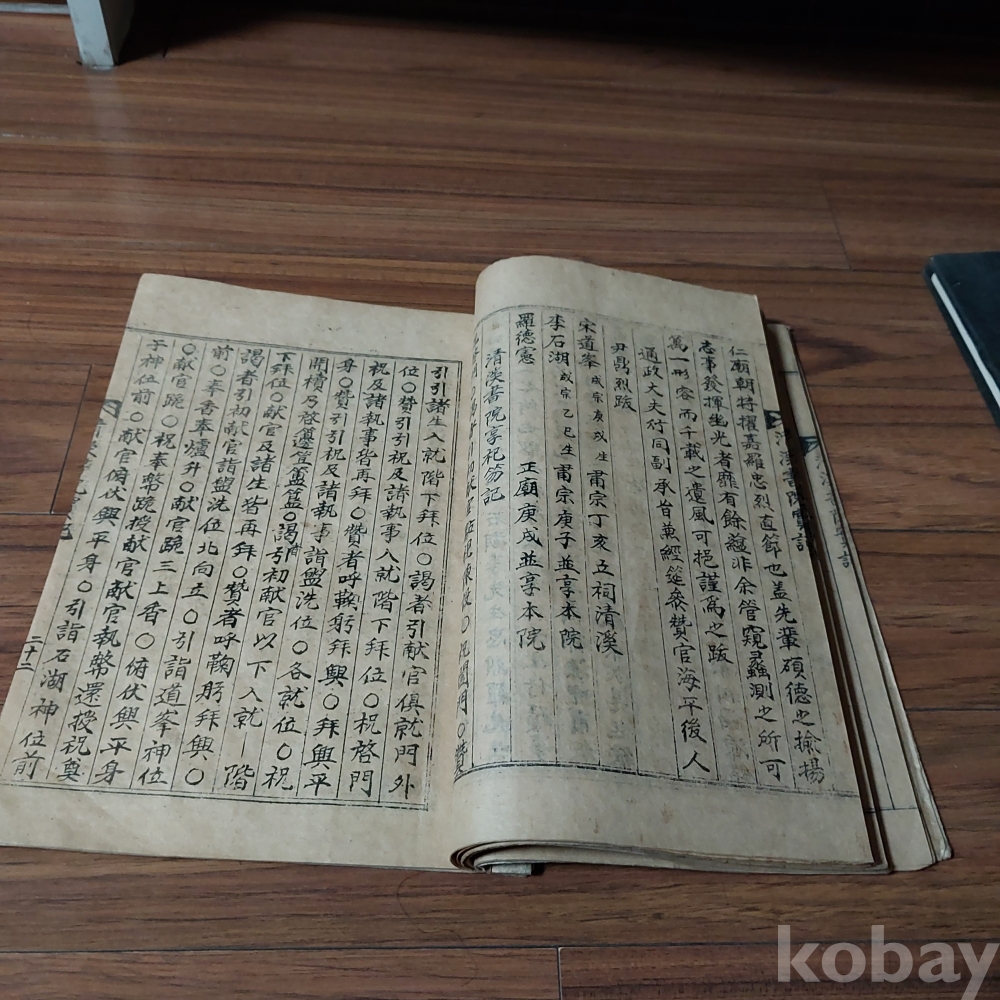 仁廟朝特擢嘉羅忠烈直節也盖先輩碩德之揄揚
志事發揮幽光者靡有餘蘊非余管窺蠡測之所可
爲一形容而千載之遺風可挹謹爲之跋
通政大夫行同副承旨兼經筵叅贊官海平後人
尹昌烈跋
宋道峯 成宗庚戌生 肅宗丁亥立祠清溪
李石湖 成宗乙巳生 肅宗庚子並享本院
羅德憲 正廟庚戌並享本院
清溪書院享祀笏記
引引諸生入就階下拜位〇謁者引献官俱就門外
位〇贊引引祝及諸執事入就階下拜位〇祝啓門
祝及諸執事皆再拜〇贊者呼鞠躬拜興〇拜興平
身〇贊引引祝及諸執事詣盥洗位〇各就位〇祝
開櫝及啓邊簠簋〇謁引初献官以下入就一階
下拜位〇献官及諸生皆再拜〇贊者呼鞠躬拜興〇
謁者引初献官詣盥洗位北向立〇引詣道峯神位
前〇奉香奉爐升〇献官跪三上香〇俯伏興平身
〇献官跪〇祝奉幣跪授献官献官執幣還授祝奠
于神位前〇献官俯伏興平身〇引詣石湖神位前
二十二
kobay